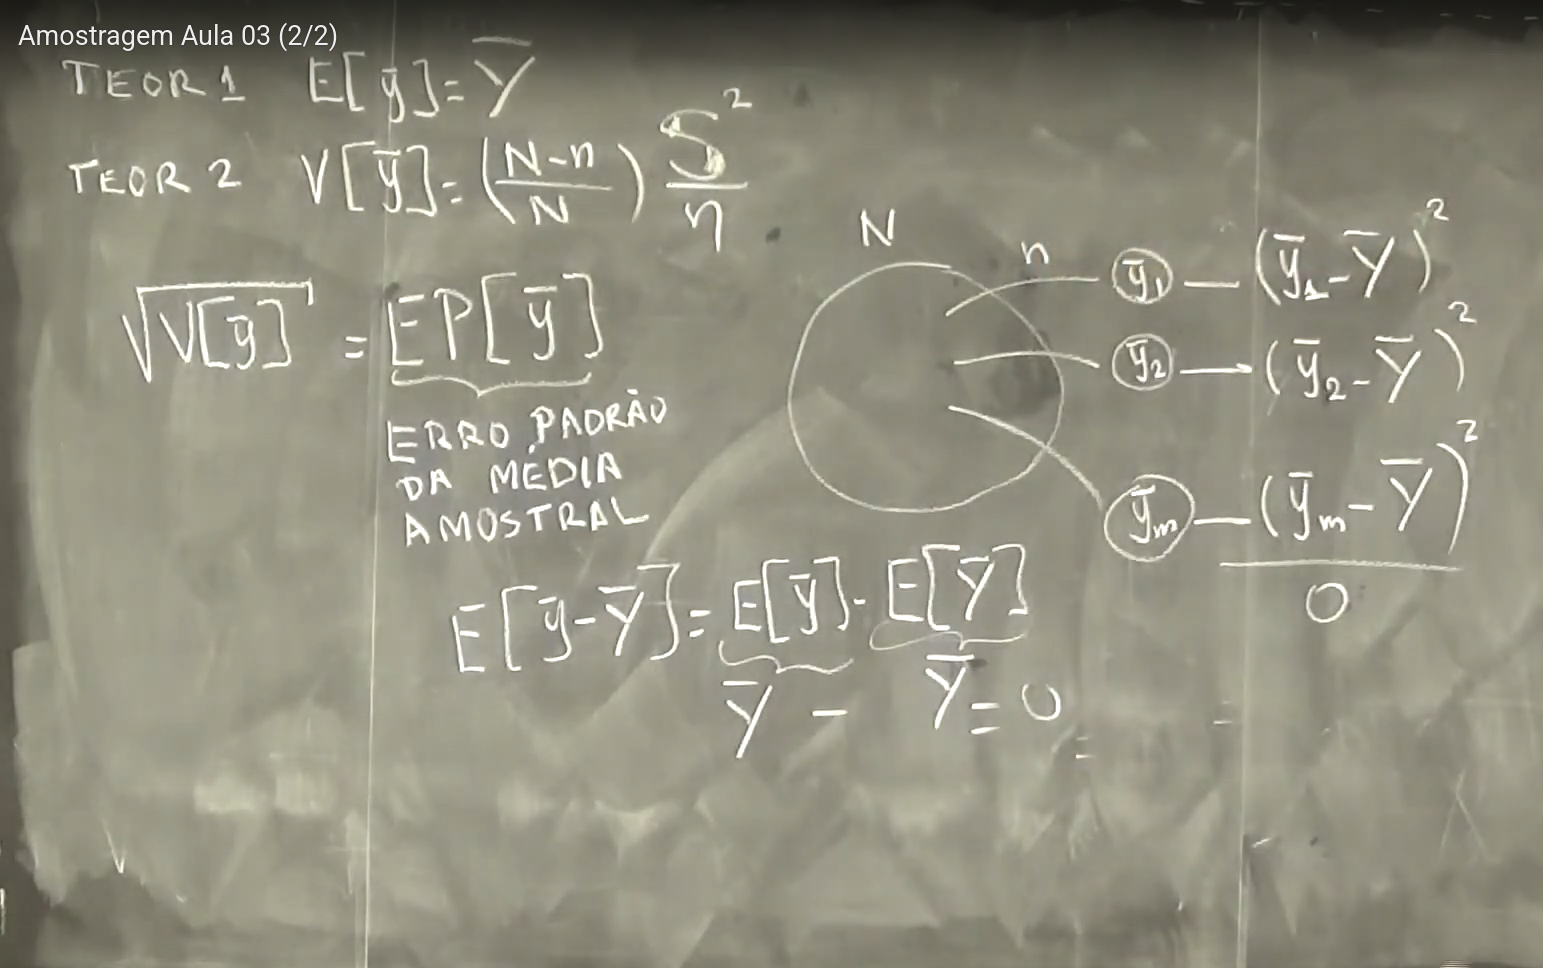 Amostragem Aula 03 (2/2)
TEOR 1 E[ȳ]=Ȳ
TEOR 2 V[ȳ]=((N-n)/N) S²/n
√V[ȳ] = EP[ȳ]
ERRO PADRÃO
DA MÉDIA
AMOSTRAL
N
n
ȳ₁ — (ȳ₁-Ȳ)²
ȳ₂ — (ȳ₂-Ȳ)²
ȳₘ — (ȳₘ-Ȳ)²
0
E[ȳ-Ȳ]=E[ȳ]-E[Ȳ]
Ȳ - Ȳ=0